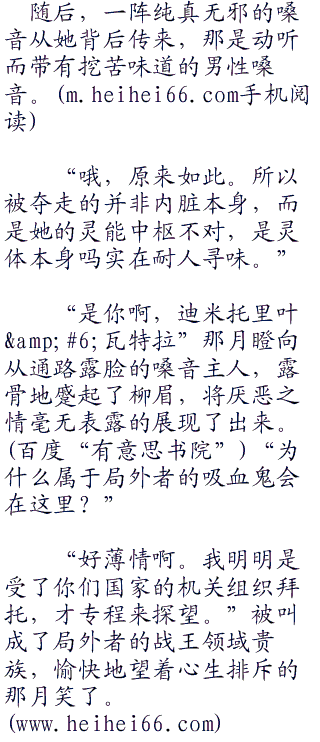 随后，一阵纯真无邪的嗓
音从她背后传来，那是动听
而带有挖苦味道的男性嗓
音。(m.heihei66.com手机阅
读)
“哦，原来如此。所以
被夺走的并非内脏本身，而
是她的灵能中枢不对，是灵
体本身吗实在耐人寻味。”
“是你啊，迪米托里叶
&amp;#6;瓦特拉”那月瞪向
从通路露脸的嗓音主人，露
骨地蹙起了柳眉，将厌恶之
情毫无表露的展现了出来。
(百度“有意思书院”)“为
什么属于局外者的吸血鬼会
在这里？”
“好薄情啊。我明明是
受了你们国家的机关组织拜
托，才专程来探望。”被叫
成了局外者的战王领域贵
族，愉快地望着心生排斥的
那月笑了。
(www.heihei66.com)